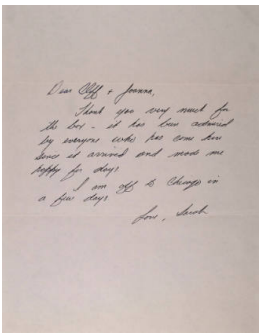 Dear Cliff + Joanna,
Thank you very much for
the box - it has been admired
by everyone who has come here
since it arrived and made me
happy for days
I am off to Chicago in
a few days
Love, Sarah